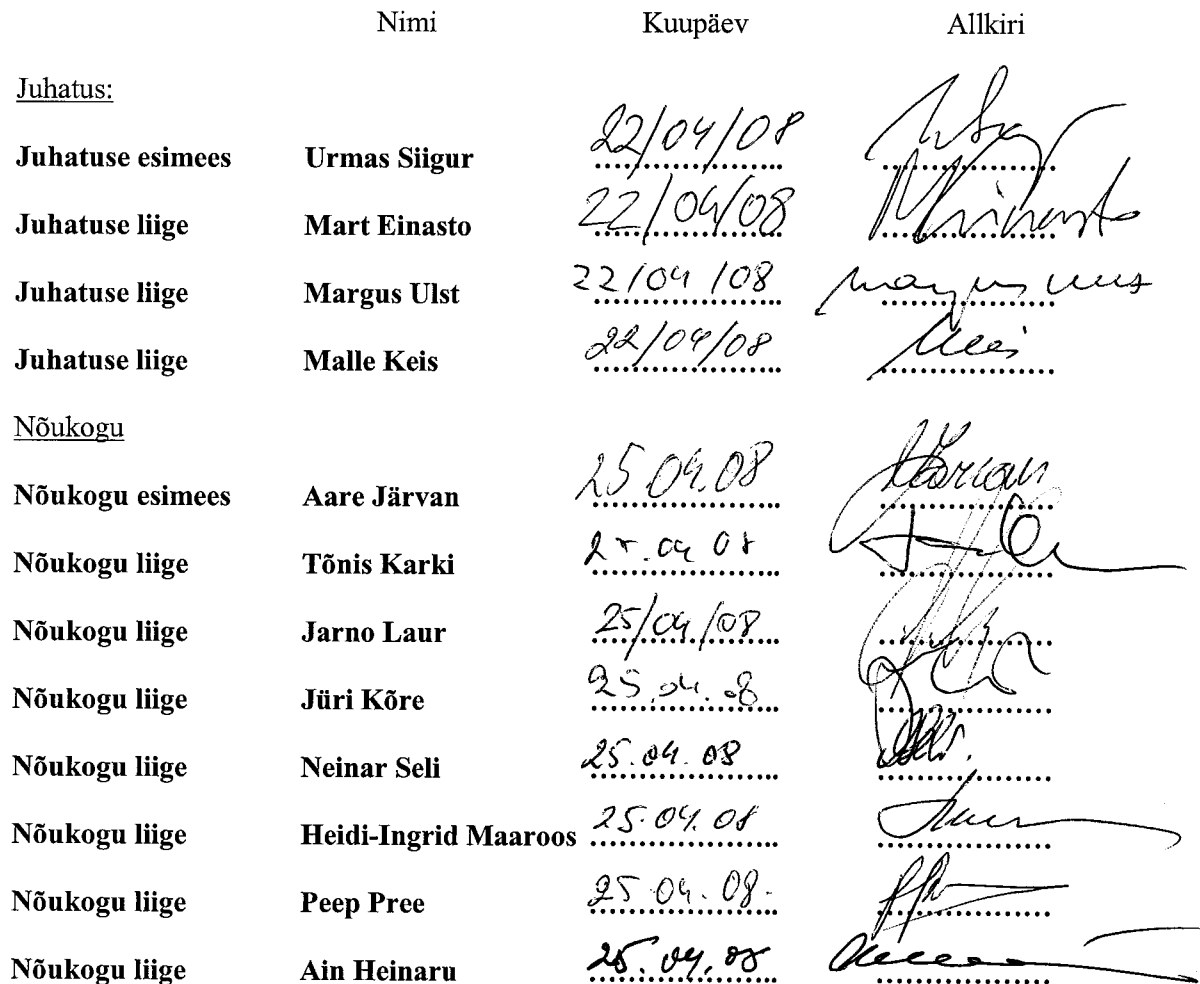 Nimi Kuupäev Allkiri
Juhatus:
Juhatuse esimees Urmas Siigur 22/04/08
Juhatuse liige Mart Einasto 22/04/08
Juhatuse liige Margus Ulst 22/04/08
Juhatuse liige Malle Keis 22/04/08
Nõukogu
Nõukogu esimees Aare Järvan 25 04.08
Nõukogu liige Tõnis Karki 04 08
Nõukogu liige Jarno Laur 25/04/08
Nõukogu liige Jüri Kõre 25.04.08
Nõukogu liige Neinar Seli 25.04.08
Nõukogu liige Heidi-Ingrid Maaroos 25.04.08
Nõukogu liige Peep Pree 25 04.08.
Nõukogu liige Ain Heinaru 25.04.08